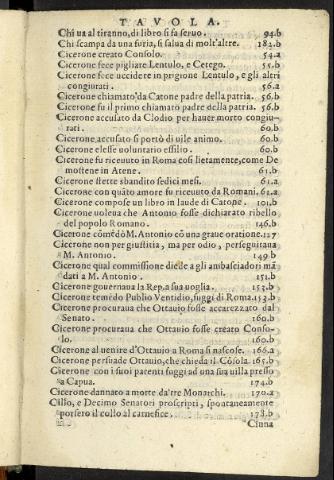 TAVOLA.
Chi va al tiranno, di libero si fa servo. 94.b
Chi scampa da una furia, si salua di molt'altre. 182.b
Cicerone creato Consolo. 54.a
Cicerone fece pigliare Lentulo, e Cetego. 55.b
Cicerone fece uccidere in prigione Lentulo, e gli altri
congiurati. 56.a
Cicerone chiamato da Catone padre della patria. 56.b
Cicerone fu il primo chiamato padre della patria. 56.b
Cicerone accusato da Clodio per hauer morto congiu-
rati. 60.b
Cicerone accusato si portò di uile animo. 60.b
Cicerone elesse uoluntario essilio. 60.b
Cicerone fu riceuuto in Roma cosi lietamente, come De
mostene in Atene. 61.b
Cicerone stette sbandito sedici mesi. 61.a
Cicerone con quãto amore fu riceuuto da Romani. 61.a
Cicerone compose un libro in laude di Catone. 101.b
Cicerone uoleua che Antonio fosse dichiarato ribello
del popolo Romano. 146.b
Cicerone cõmẽdò M. Antonio cõ una graue oratione. 127
Cicerone non per giustitia, ma per odio, perseguitaua
M. Antonio. 149 b
Cicerone qual commissione diede a gli ambasciadori mã
dati a M. Antonio. 151.b
Cicerone gouernaua la Rep. a sua uoglia. 155.b
Cicerone temẽdo Publio Ventidio, fuggì di Roma. 153.b
Cicerone procuraua che Ottauio fosse accarezzato dal
Senato. 160.b
Cicerone procuraua che Ottauio fosse creato Conso-
lo. 160.b
Cicerone al uenire d'Ottauio a Roma si nascose. 166.a
Cicerone persuade Ottauio, che chieda il Cõsolato 165.b
Cicerone con i suoi parenti fuggì ad una sua uilla presso
a Capua. 174.b
Cicerone dannato a morte da'tre Monarchi. 170.a
Cillo, e Decimo Senatori proscripti, spontaneamente
porsero il collo al carnefice. 178.b
Cinna